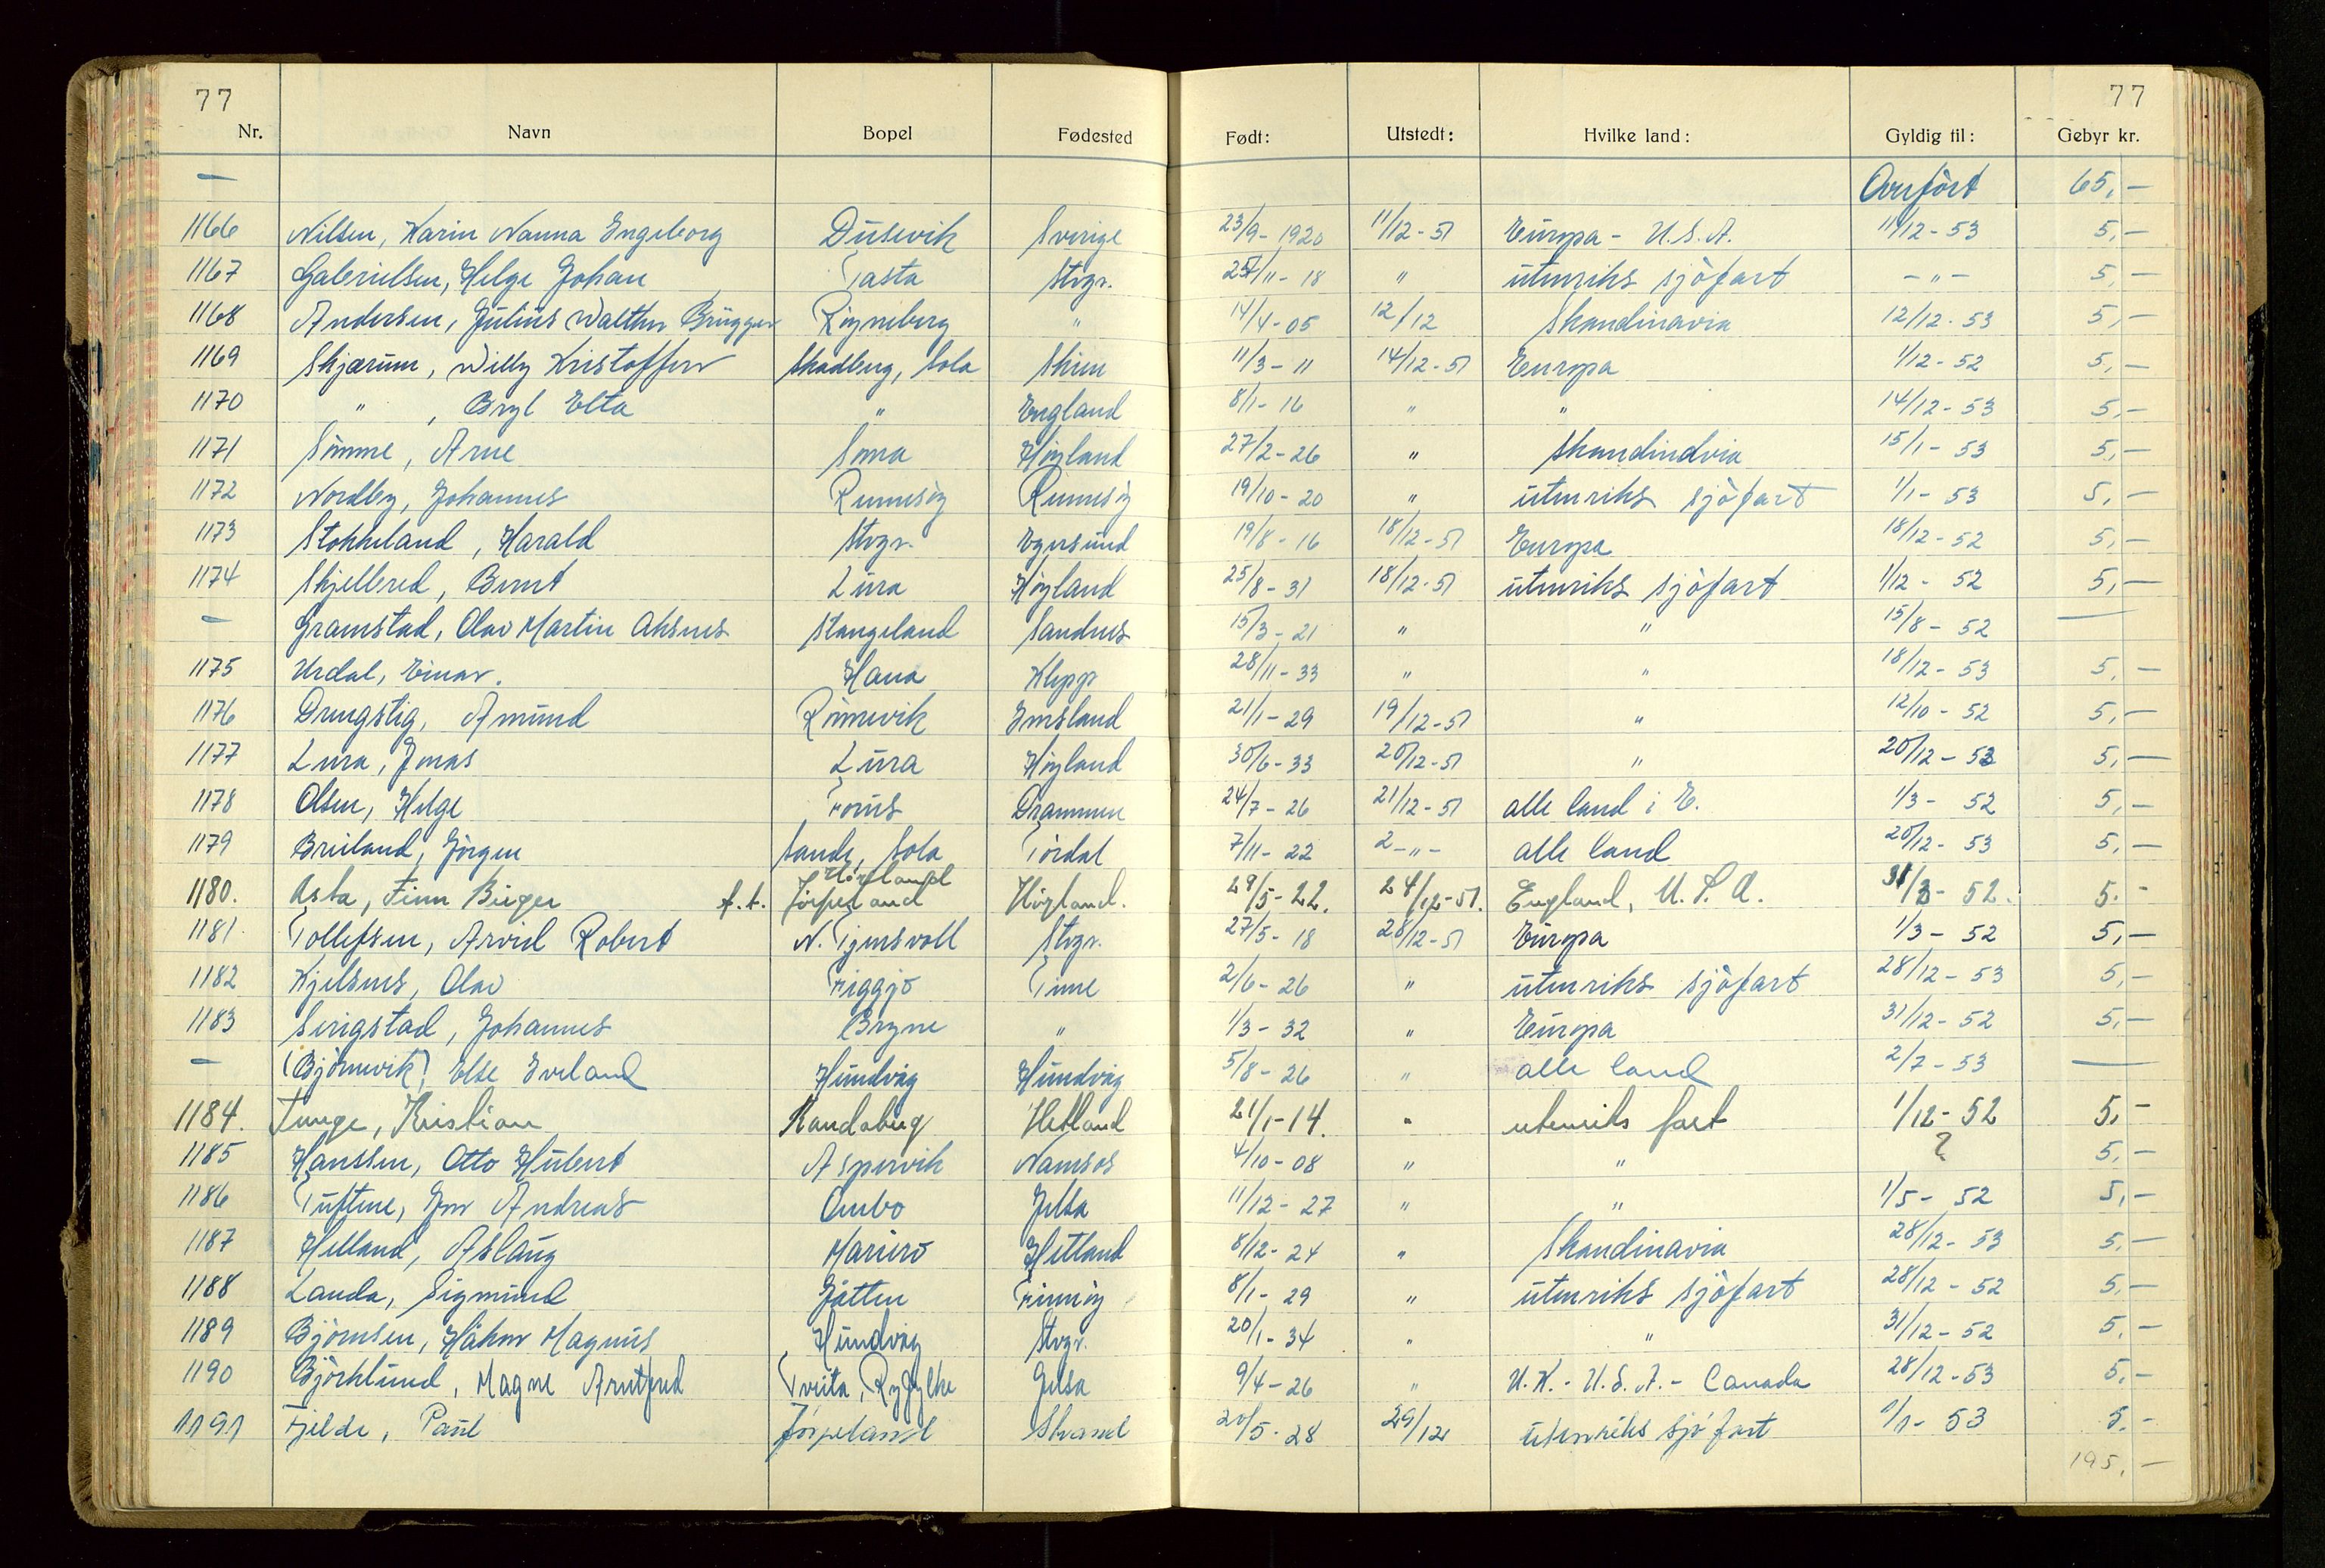 77 77
Nr. Navn Bopel Fødested Født: Utstedt: Hvilke land: Gyldig til: Gebyr kr.
— Overført 65,-
1166 Nilsen, Karin Nanna Engeborg Dusevik Sverige 23/9-1920 11/12-51 Europa - U.S.A. 11/12-53 5,-
1167 Gabrielsen, Helge Johan Tasta Stvgr. 25/11-18 " utenriks sjöfart -"- 5,-
1168 Andersen, Julius Walther Brügger Röyneberg " 14/4-05 12/12 Skandinavia 12/12-53 5,-
1169 Skjærum, Willy Kristoffer Skadberg, Sola Skien 11/3-11 14/12-51 Europa 1/12-52 5,-
1170 " , Beryl Elta " England 8/1-16 " " 14/12-53 5,-
1171 Sömme, Arne Soma Høyland 27/2-26 " Skandindvia 15/1-53 5,-
1172 Nordby, Johannes Rennesöy Rennesöy 19/10-20 " utenriks sjöfart 1/1-53 5,-
1173 Stokkeland, Harald Stvgr. Egersund 19/8-16 18/12-51 Europa 18/12-52 5,-
1174 Skjellered, Bernt Lura Høyland 25/8-31 18/12-51 utenriks sjöfart 1/12-52 5,-
— Gramstad, Olav Martin Aksnes Stangeland Sandnes 15/3-21 " " 15/8-52 —
1175 Urdal, Einar. Hana Klepp 28/11-33 " " 18/12-53 5,-
1176 Drengstig, Amund Rönnevik Imsland 21/1-29 19/12-51 " 12/10-52 5,-
1177 Lura, Jonas Lura Høyland 30/6-33 20/12-51 " 20/12-53 5,-
1178 Olsen, Helge Forus Drammen 24/7-26 21/12-51 alle land i E. 1/3-52 5,-
1179 Breiland, Jörgen Sande, Sola Tördal 7/11-22 2-"- alle land 20/12-53 5,-
1180. Asta, Finn Birger f.t. Jörpeland Höyland Höyland. 29/5-22. 24/12-51. England, U.S.A. 31/3-52. 5.-
1181 Tollefsen, Arvid Robert N. Tjensvoll Stvgr. 27/5-18 28/12-51 Europa 1/3-52 5,-
1182 Kjelsnes, Olav Figgjo Time 2/6-26 " utenriks sjöfart 28/12-53 5,-
1183 Serigstad, Johannes Bryne " 1/3-32 " Europa 31/12-52 5,-
— (Björnevik), Else Eveland Hundvåg Hundvåg 5/8-26 " alle land 2/7-53 —
1184. Tunge, Kristian Randaberg Hetland 21/1-14. " utenriks fart 1/12-52 5,-
1185 Hanssen, Otto Hubert Aspervik Namsos 4/10-08 " " ? 5,-
1186 Tuftene, Geir Andreas Ombo Jelsa 11/12-27 " " 1/5-52 5,-
1187 Helland, Aslaug Mariero Hetland 8/12-24 " Skandinavia 28/12-53 5,-
1188 Landa, Sigmund Gåtten Finnöy 8/1-29 " utenriks sjöfart 28/12-52 5,-
1189 Björnsen, Håkon Magnus Hundvåg Stvgr. 20/1-34 " " 31/12-52 5,-
1190 Björklund, Magne Arntfred Tveita, Ryfylke Jelsa 9/4-26 " U.K.- U.S.A.- Canada 28/12-53 5,-
1191 Fjelde, Paul Jörpeland Strand 20/5-28 29/12 utenriks sjöfart 1/1-53 5.-
195,-